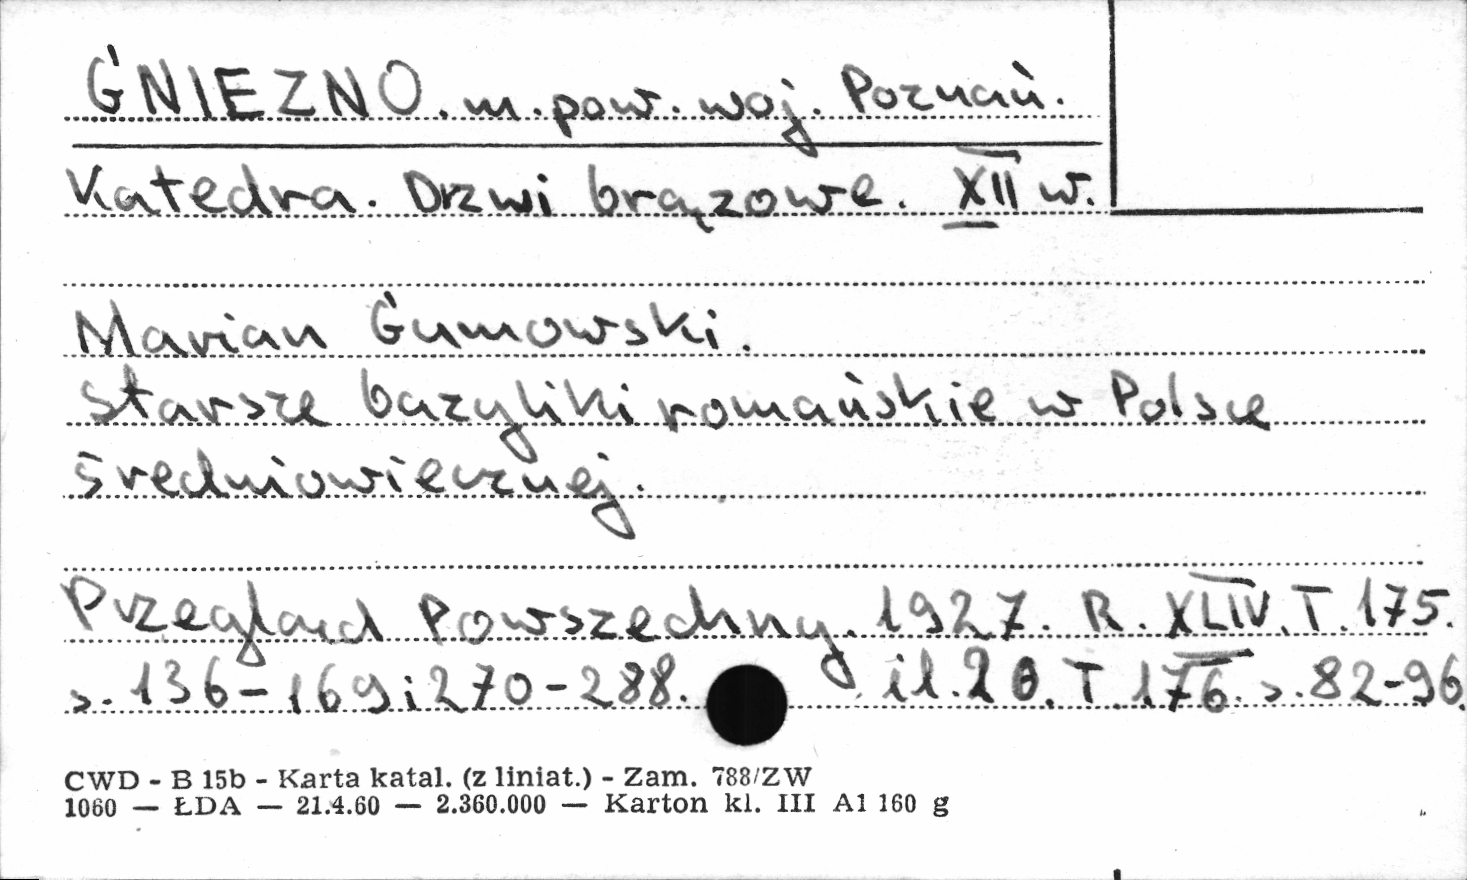 GNIEZNO. m. pow. woj. Poznań.
Katedra. Drzwi brązowe. XII w.
Marian Gumowski.
Starsze bazyliki romańskie w Polsce
średniowiecznej.
Przegląd Powszechny. 1927. R. XLIV. T. 175.
s. 136-169 i 270-288. il. 20. T 176. s. 82-96.
CWD - B 15b - Karta katal. (z liniat.) - Zam. 788/ZW
1060 — ŁDA — 21.4.60 — 2.360.000 — Karton kl. III A1 160 g